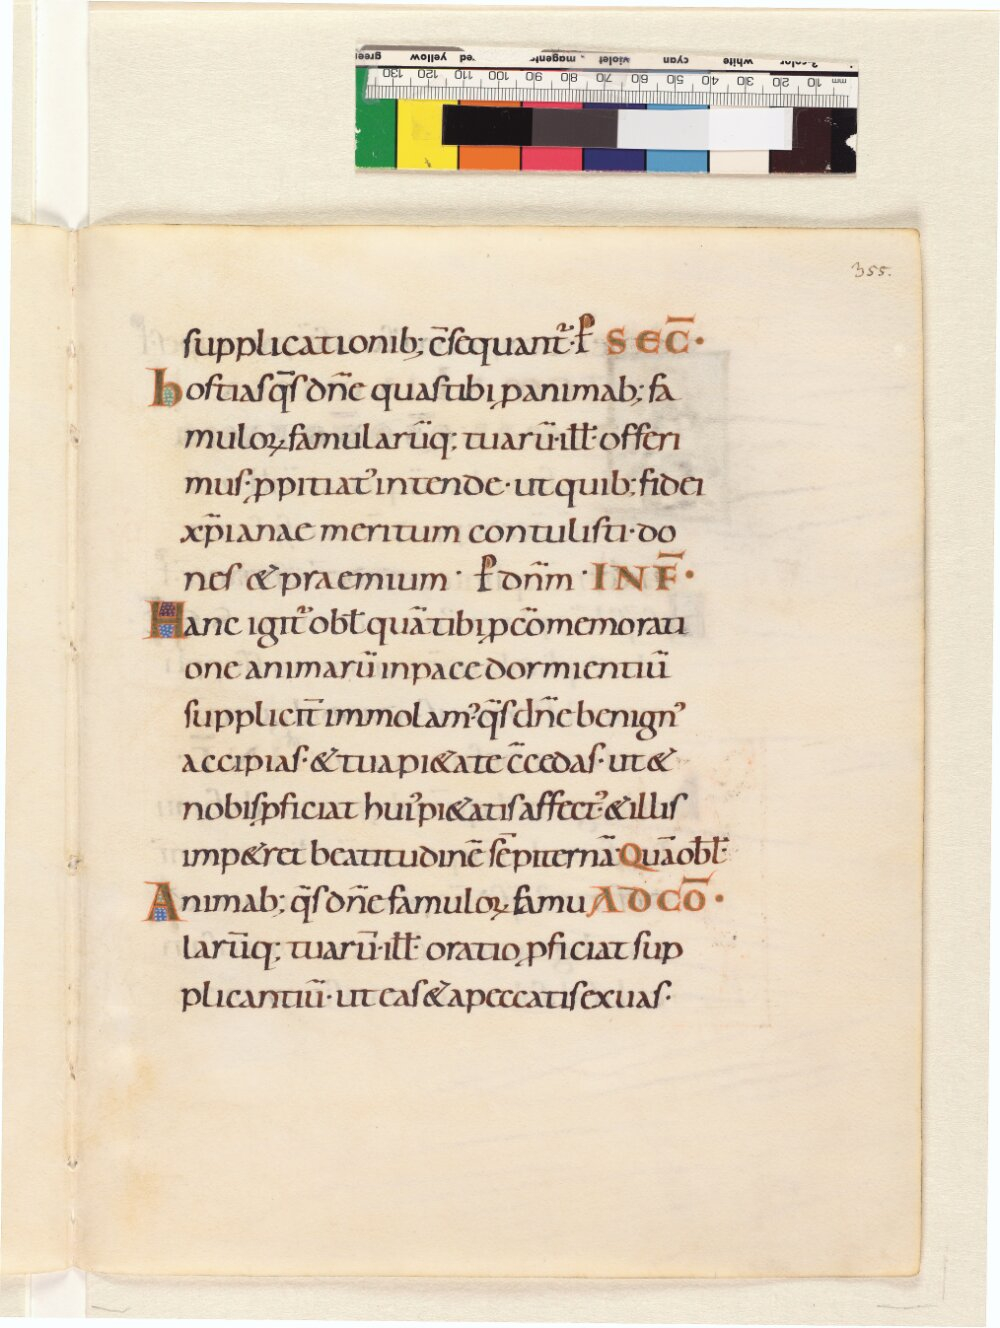 green yellow red magenta violet cyan white 3-color
mm 10 20 30 40 50 60 70 80 90 100 110 120 130
355.
supplicationib; c̄sequant᷑· ꝑ SEC̄·
hostias q̄s dn̄e quas tibi ꝓ animab; fa
muloꝝ famularūq; tuarū· ill̄· offeri
mus· ꝓpitiat᷒ intende· ut quib; fidei
xp̄ianae meritum contulisti· do
nes & praemium· ꝑ dn̄m· INF̄·
Hanc igit᷑ obl̄ quā tibi ꝓ cōmemorati
one animarū in pace dormientiū
supplicit̄ immolam᷒ q̄s dn̄e benign᷒
accipias· & tua pi&ate c̄cedas· ut &
nobis ꝓficiat hui᷒ pi&atis affect᷒· & illis
imp&ret beatitudinē sēpiternā· Quā obl̄·
Animab; q̄s dn̄e famuloꝝ famu AD CŌ·
larūq; tuarū· ill̄· oratio ꝓficiat sup
plicantiū· ut eas & a peccatis exuas·